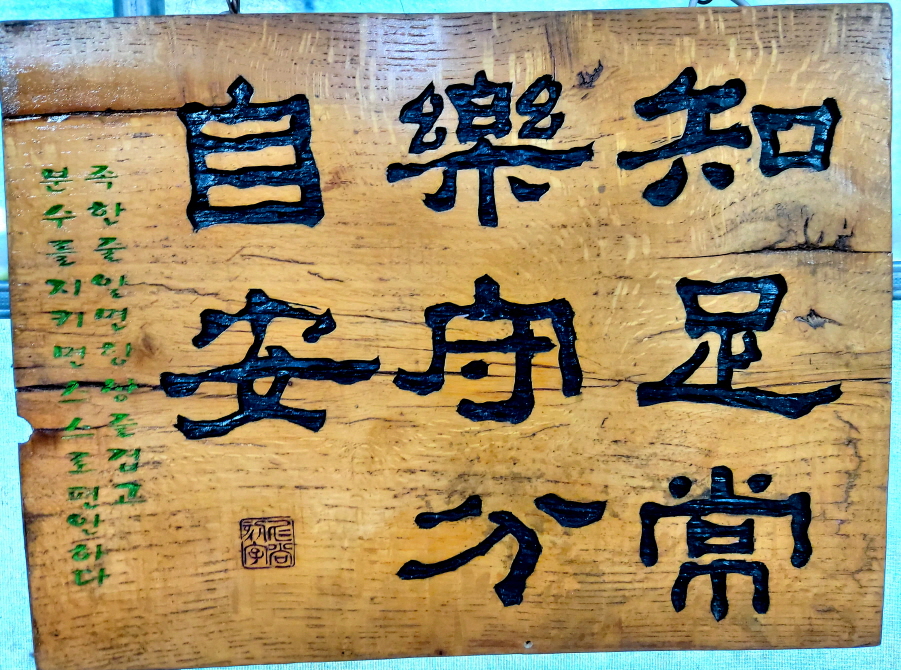 知足常
樂守分
自安
족한줄알면항상즐겁고
분수를지키면스스로편안하다